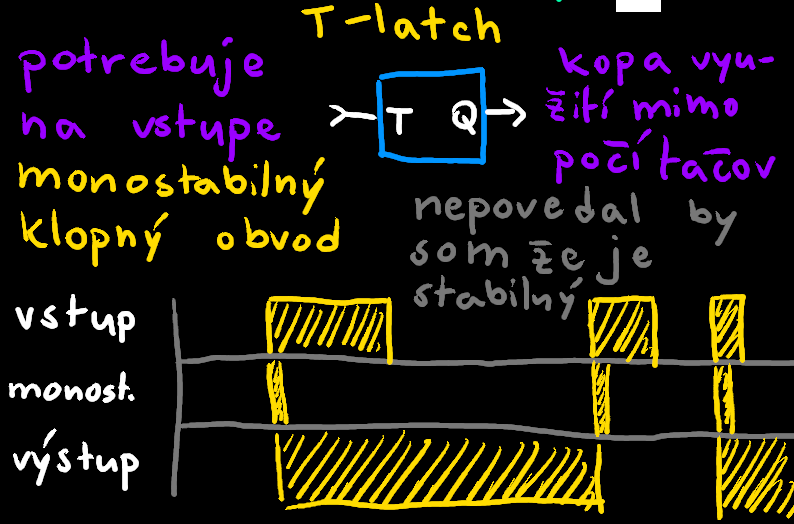 T-latch
potrebuje
na vstupe
monostabilný
klopný obvod
T Q
kopa vyu-
žití mimo
počítačov
nepovedal by
som že je
stabilný
vstup
monost.
výstup